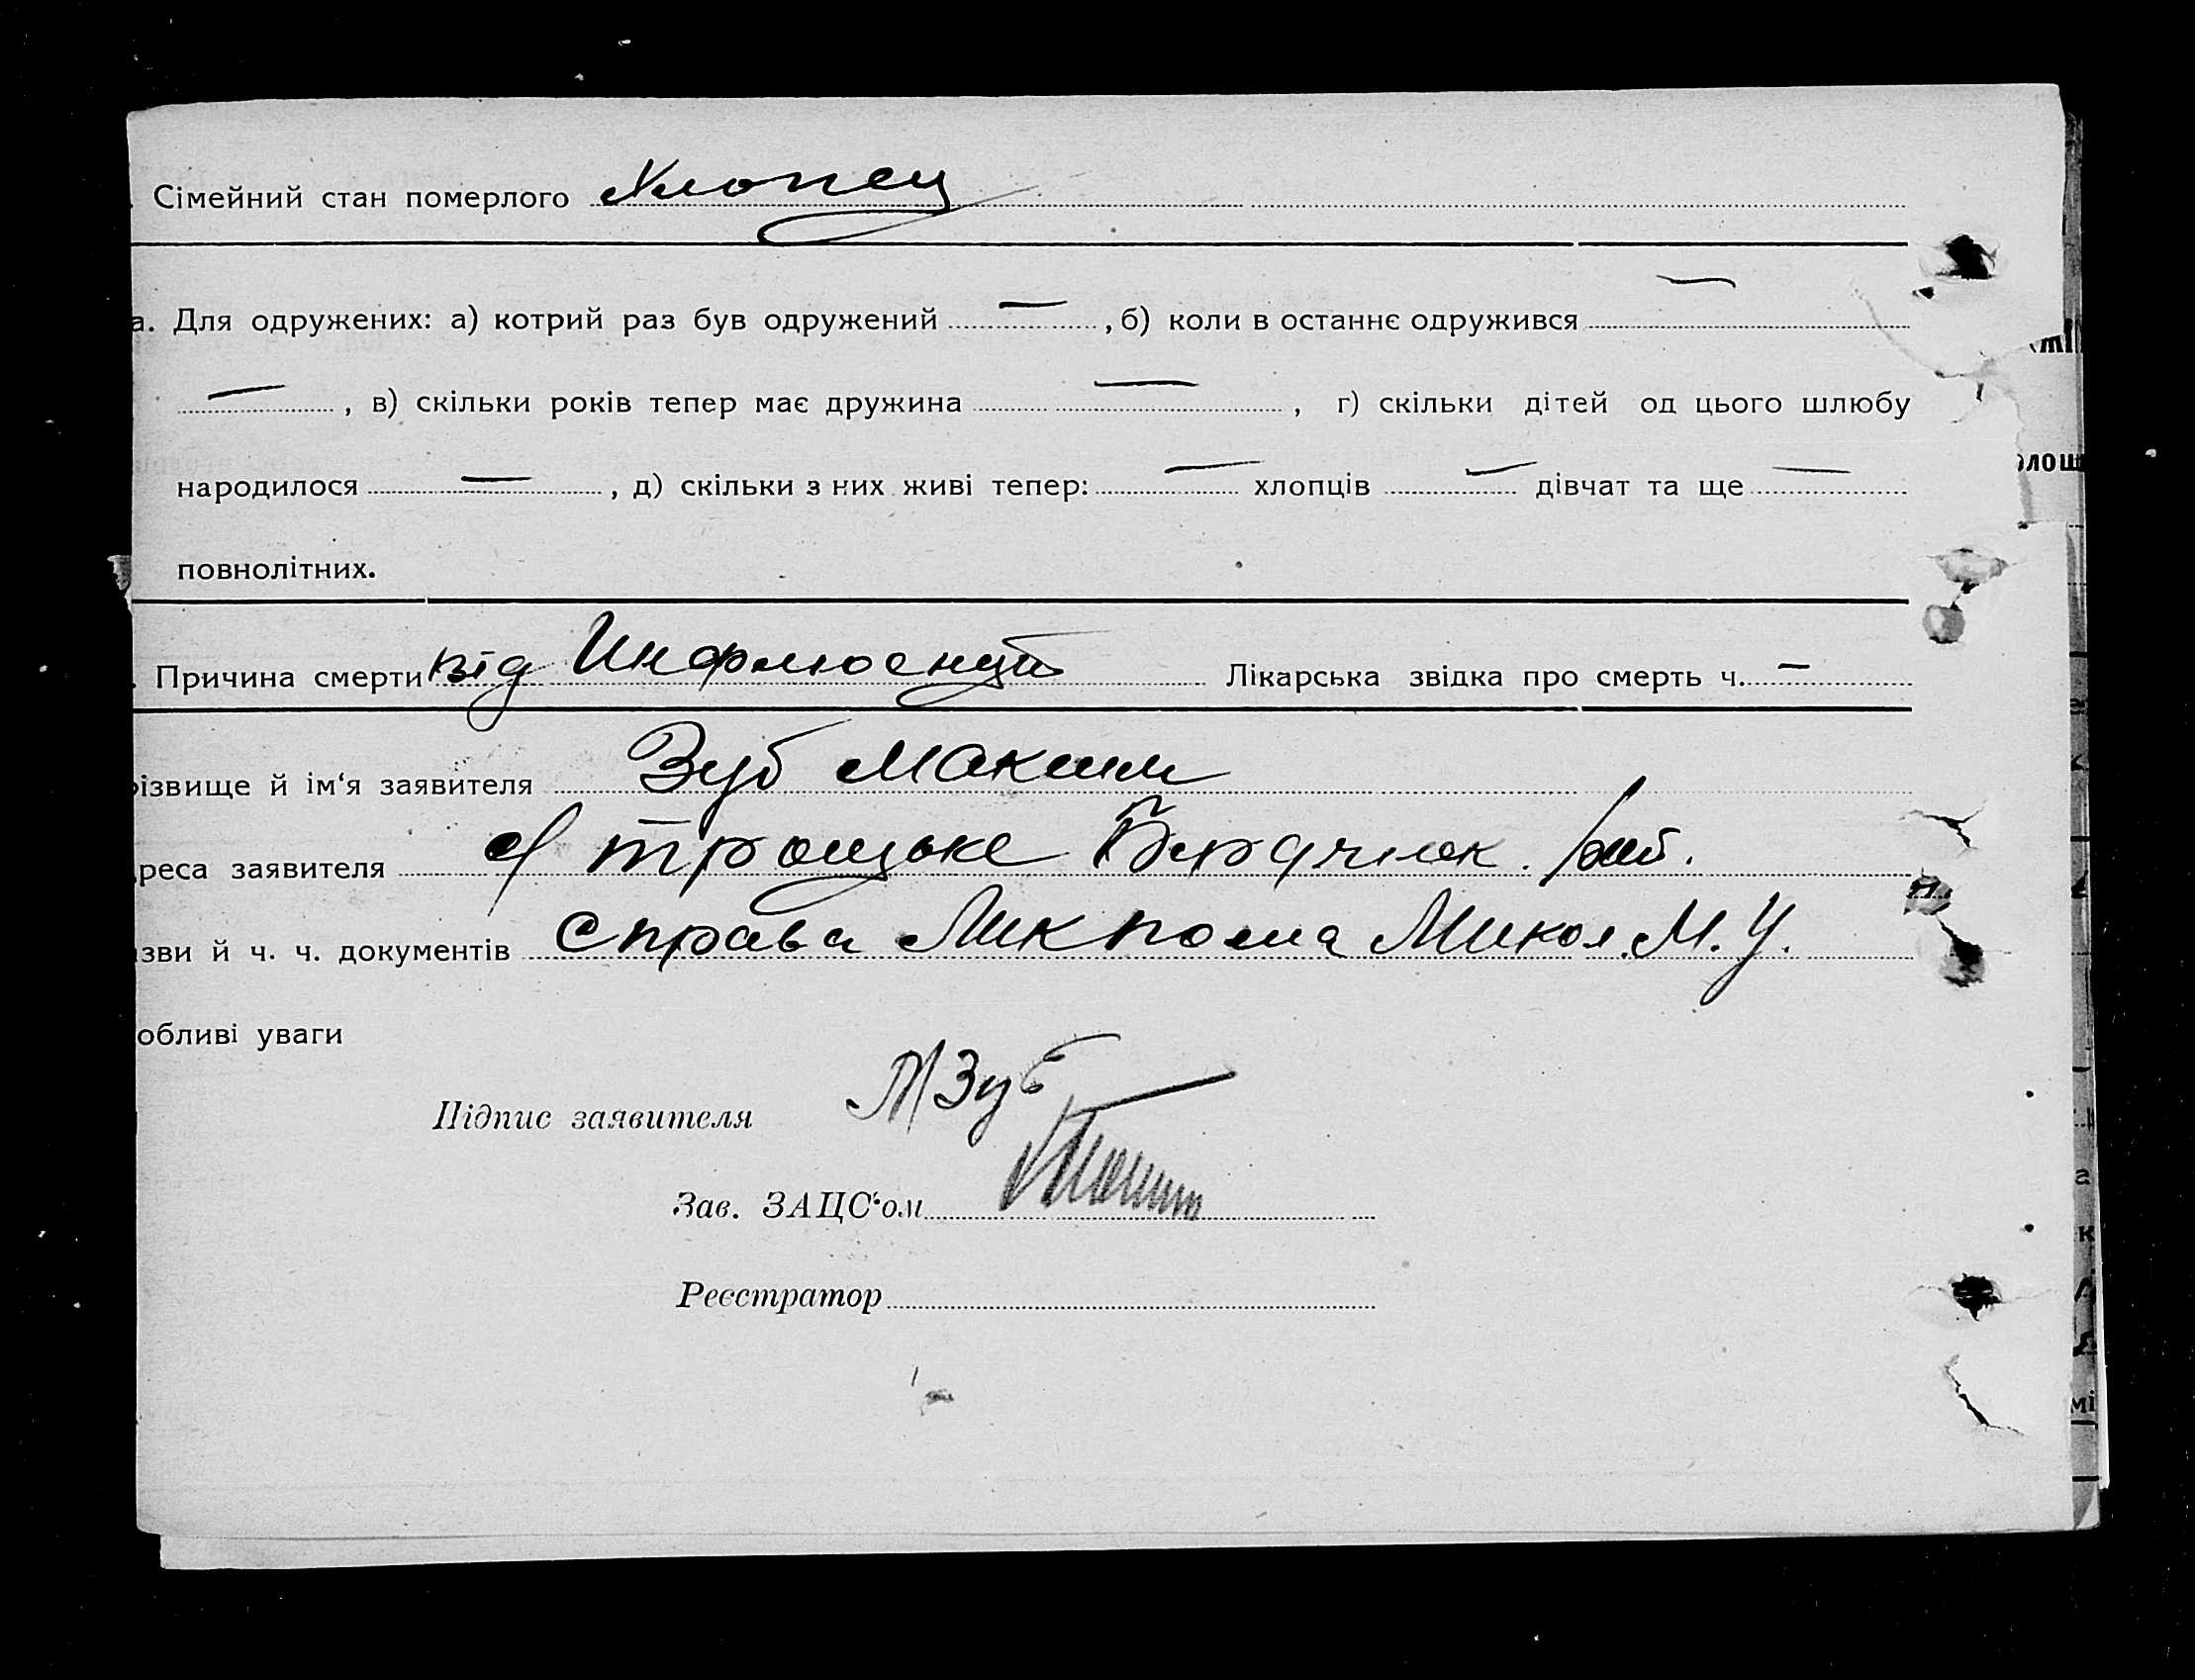 Сімейний стан померлого Хлопец
а. Для одружених: а) котрий раз був одружений — , б) коли в останнє одружився —
— , в) скільки років тепер має дружина — , г) скільки дітей од цього шлюбу
народилося — , д) скільки з них живі тепер: — хлопців — дівчат та ще —
повнолітних.
Причина смерти від Инфлюенции Лікарська звідка про смерть ч. —
різвище й ім‘я заявителя Зуб Максим
дреса заявителя с/ Троцьке
зви й ч. ч. документів справа Микол. М. У.
обливі уваги
Підпис заявителя М Зуб
Зав. ЗАЦС‘ом
Реєстратор